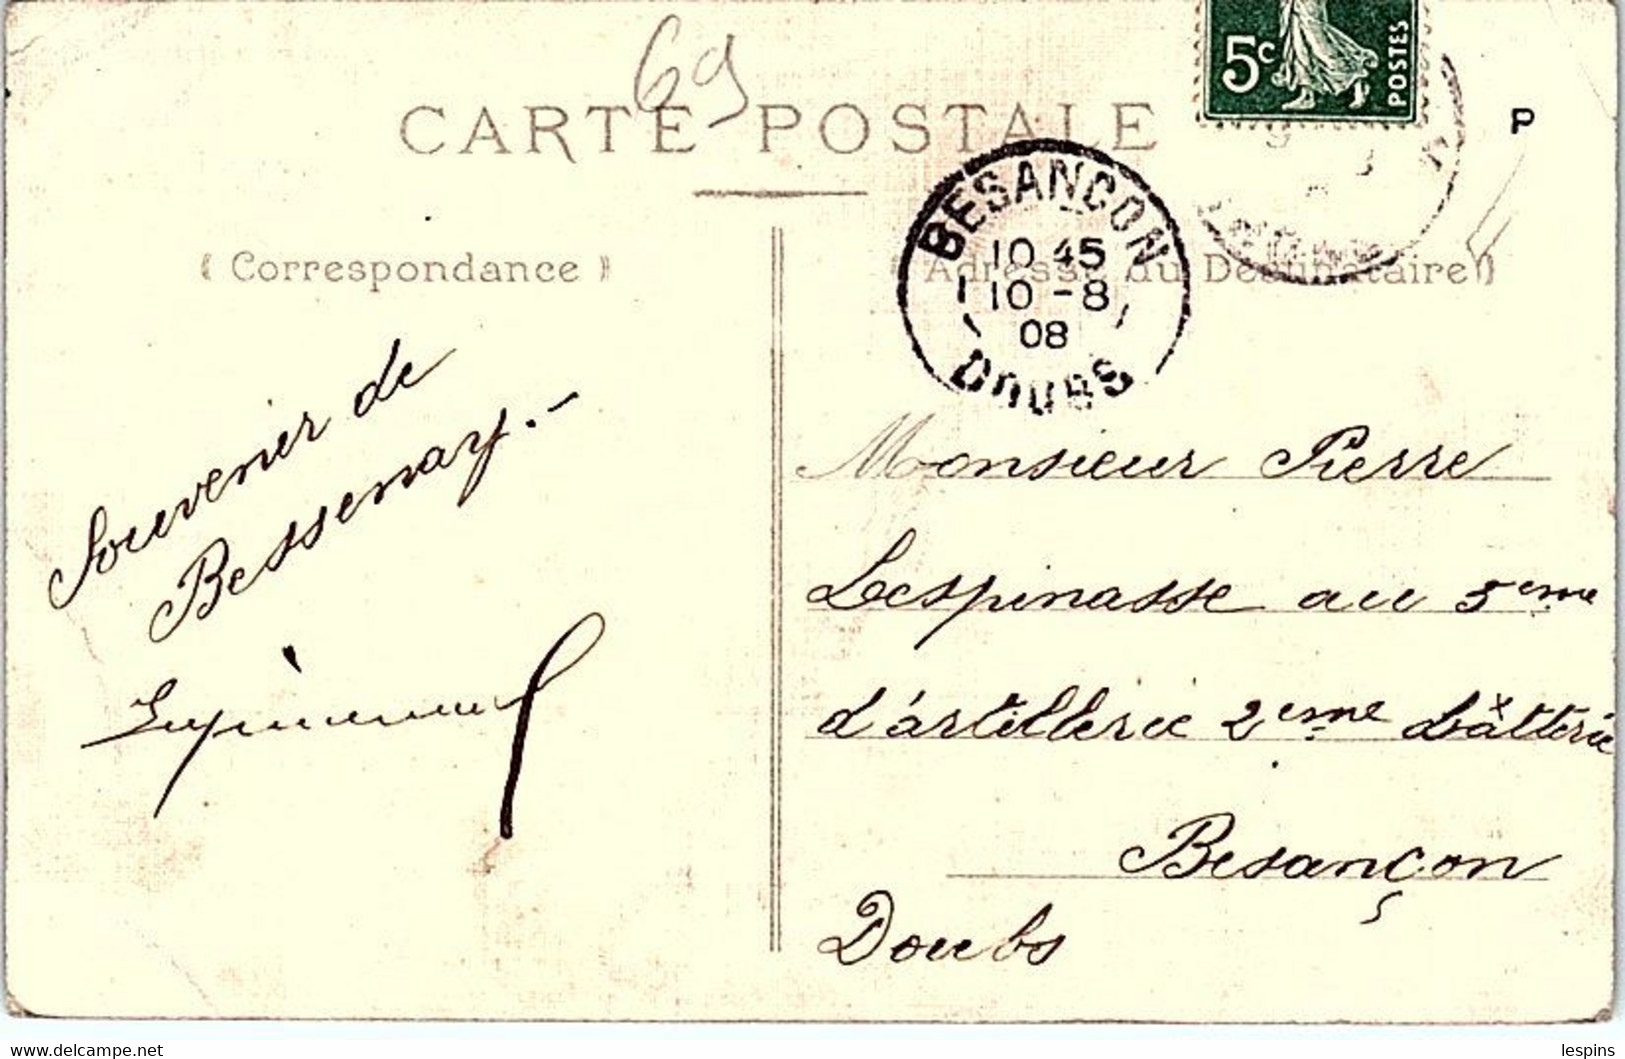 69
5c
POSTES
CARTE POSTALE
P
BESANCON
10 45
10 -8
08
DOUBS
Correspondance
Adresse du Destinataire
Souvenir de
Bessenay. -
Monsieur Pierre
Lespinasse au 5eme
d'artillerie 2eme bâtterie
Besançon
Doubs
www.delcampe.net
lespins